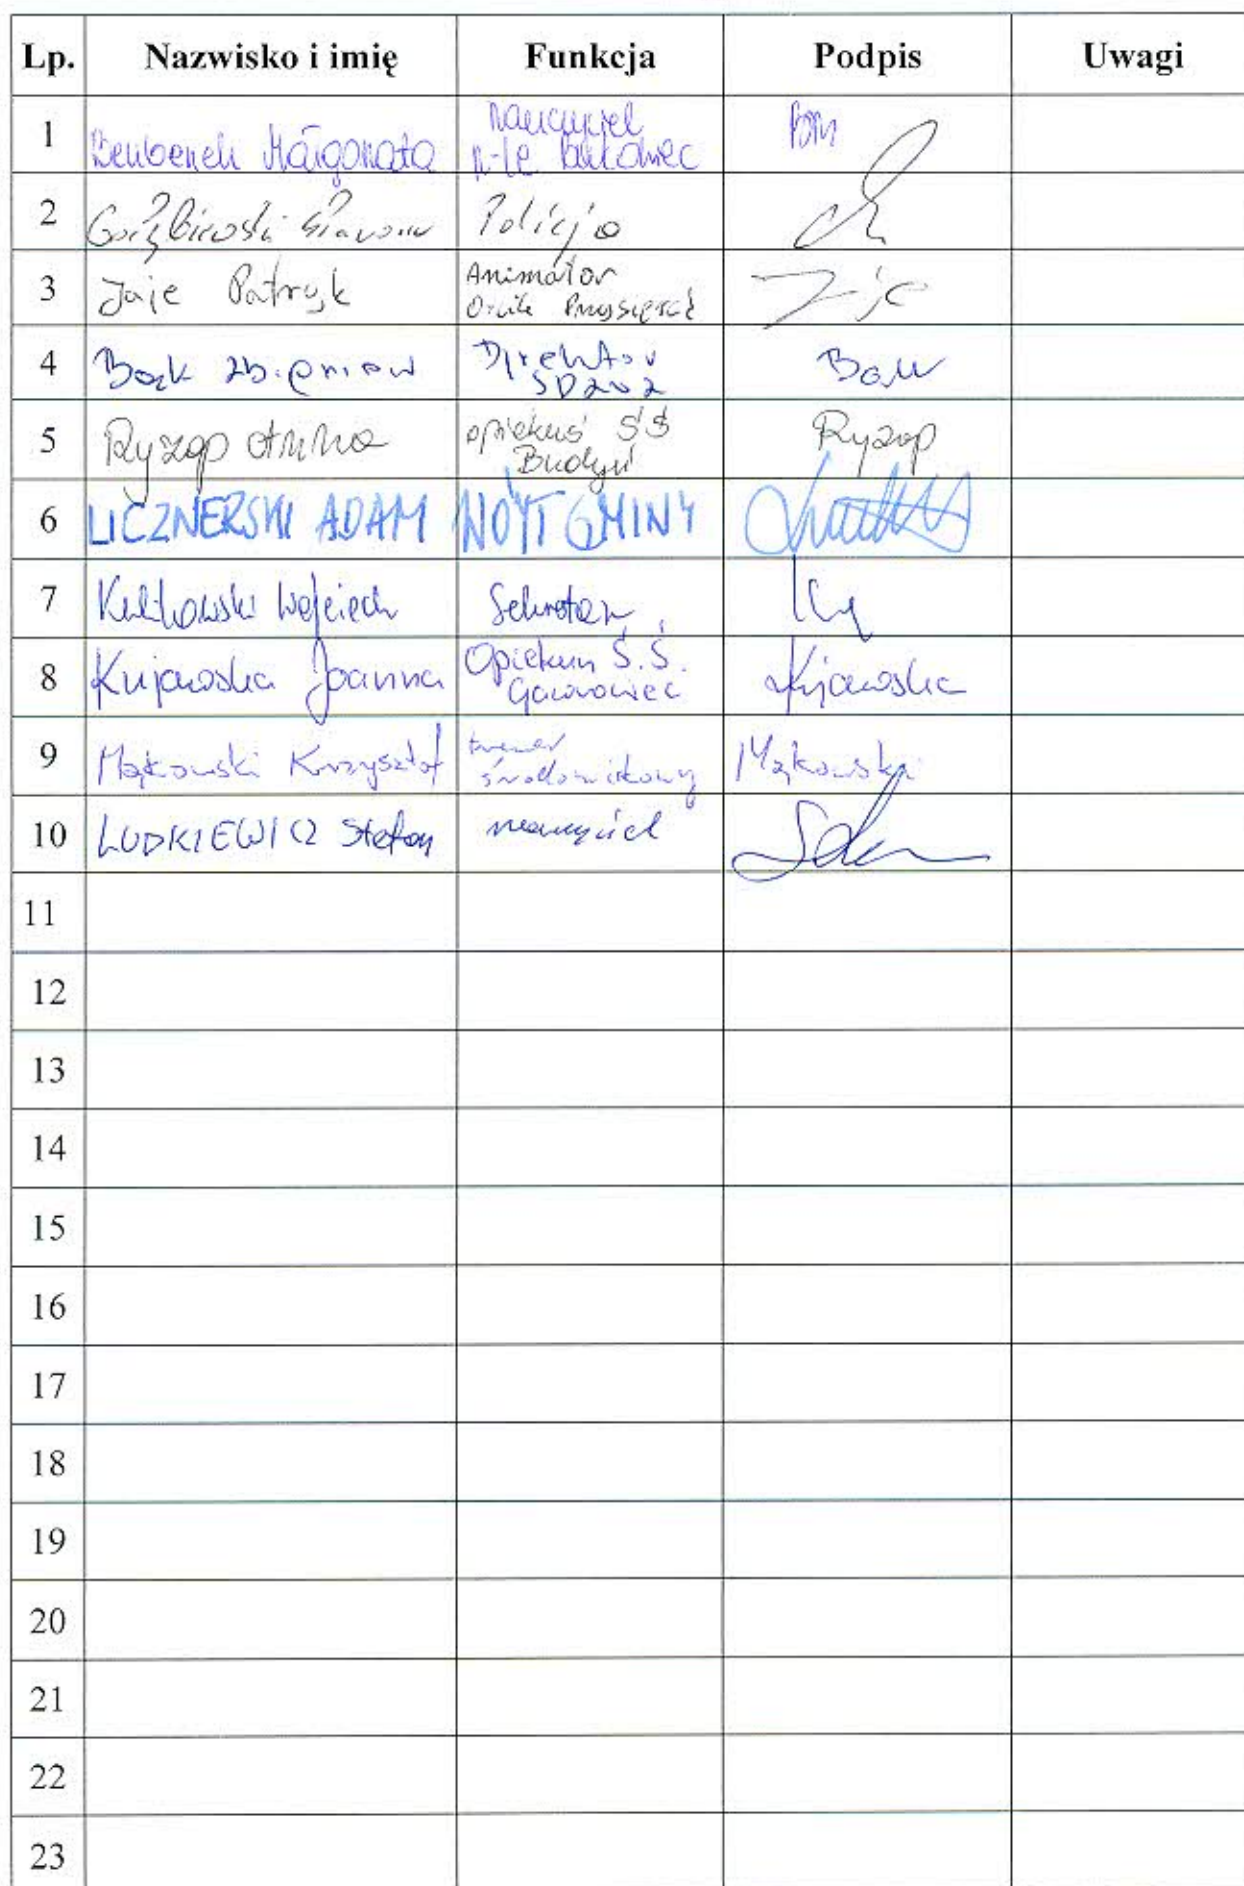 Lp. Nazwisko i imię Funkcja Podpis Uwagi
1 Małgorzata nauczyciel
Bukowiec
2 Policja
3 Jaje Patryk Animator
Orlik Przysiersk
4 Bąk Zbigniew Dyrektor
Bąk
5 Ryząp Anna opiekuń ŚŚ
Budyń Ryząp
6 LICZNERSKI ADAM WÓJT GMINY
7 Wojciech Sekretarz
8 Kujawska Joanna Opiekun Ś.Ś.
Gawroniec Kujawska
9 Mąkowski Krzysztof trener
środowiskowy Mąkowski
10 LUDKIEWICZ Stefan nauczyciel
11
12
13
14
15
16
17
18
19
20
21
22
23